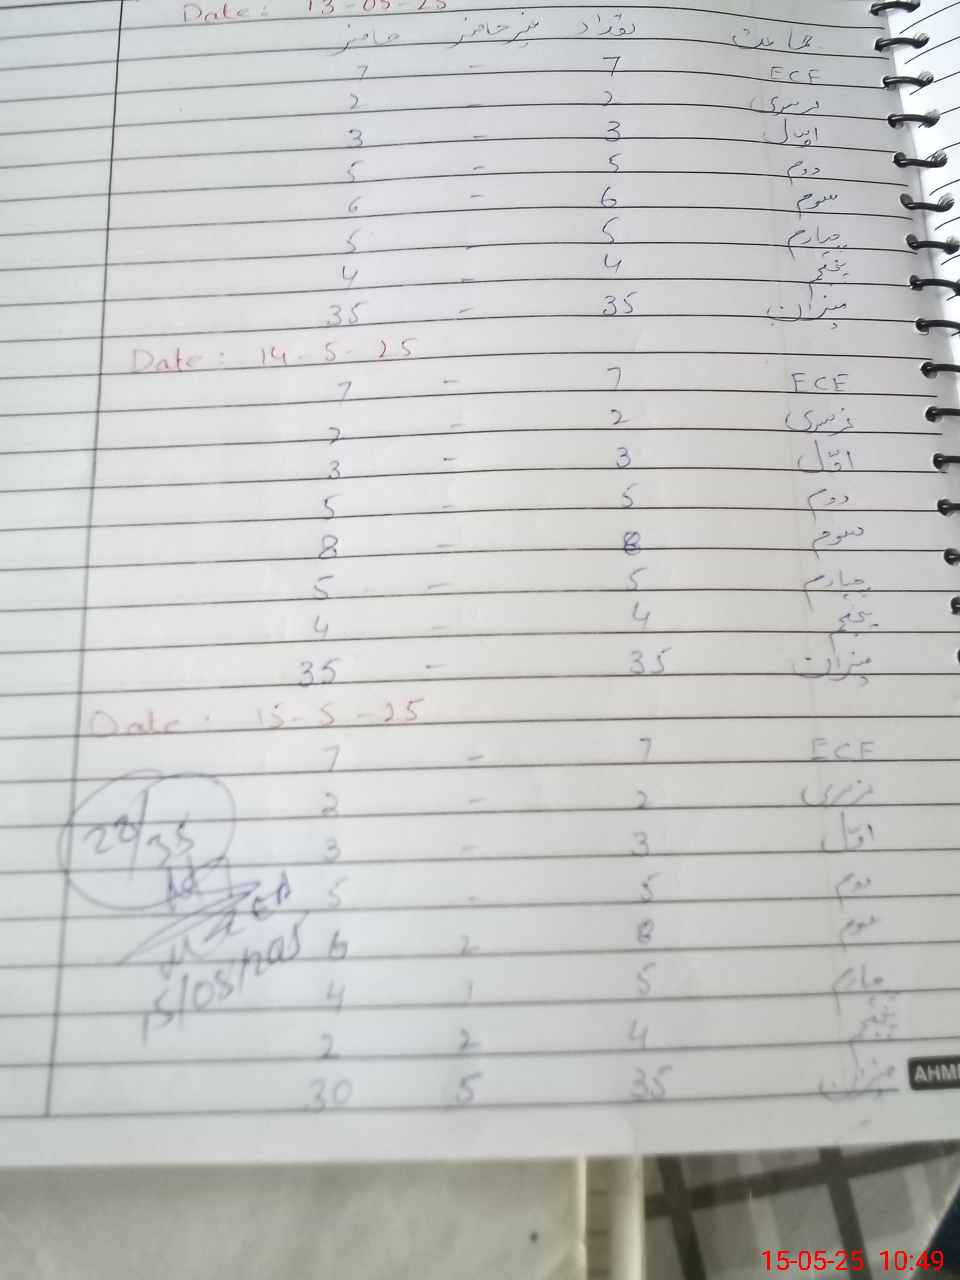 Date: 13-05-25
جماعت تعداد غیرحاضر حاضر
ECE 7 - 7
نرسری 2 - 2
اوّل 3 - 3
دوم 5 - 5
سوم 6 - 6
چہارم 5 - 5
پنجم 4 - 4
میزان 35 - 35
Date: 14-5-25
ECE 7 - 7
نرسری 2 - 2
اوّل 3 - 3
دوم 5 - 5
سوم 8 - 8
چہارم 5 - 5
پنجم 4 - 4
میزان 35 - 35
Date: 15-5-25
ECE 7 - 7
نرسری 2 - 2
اوّل 3 - 3
دوم 5 - 5
سوم 8 2 6
چہارم 5 1 4
پنجم 4 2 2
میزان 35 5 30
28/35
AHM
15-05-25 10:49